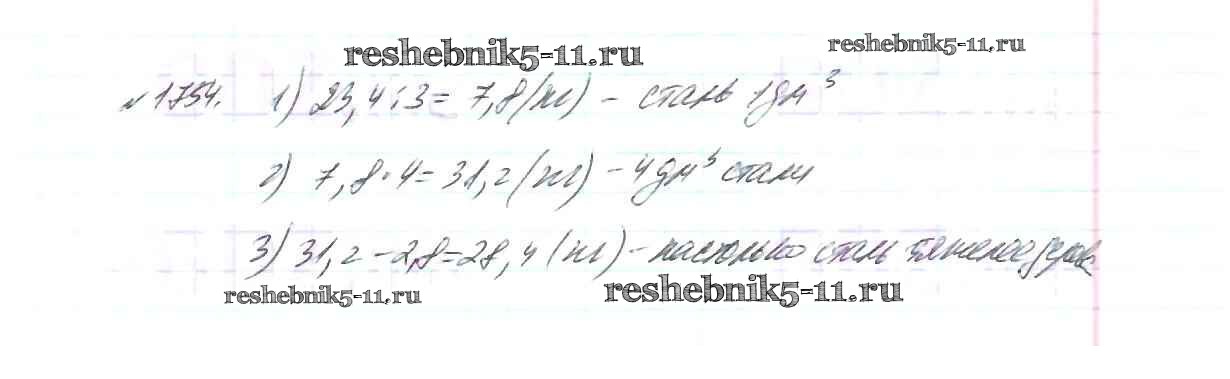 reshebnik5-11.ru
reshebnik5-11.ru
№1754. 1) 23,4:3=7,8(кг) – сталь 1дм³
2) 7,8·4=31,2(кг) – 4дм³ стали
3) 31,2–2,8=28,4(кг) – настолько сталь тяжелее
reshebnik5-11.ru
reshebnik5-11.ru